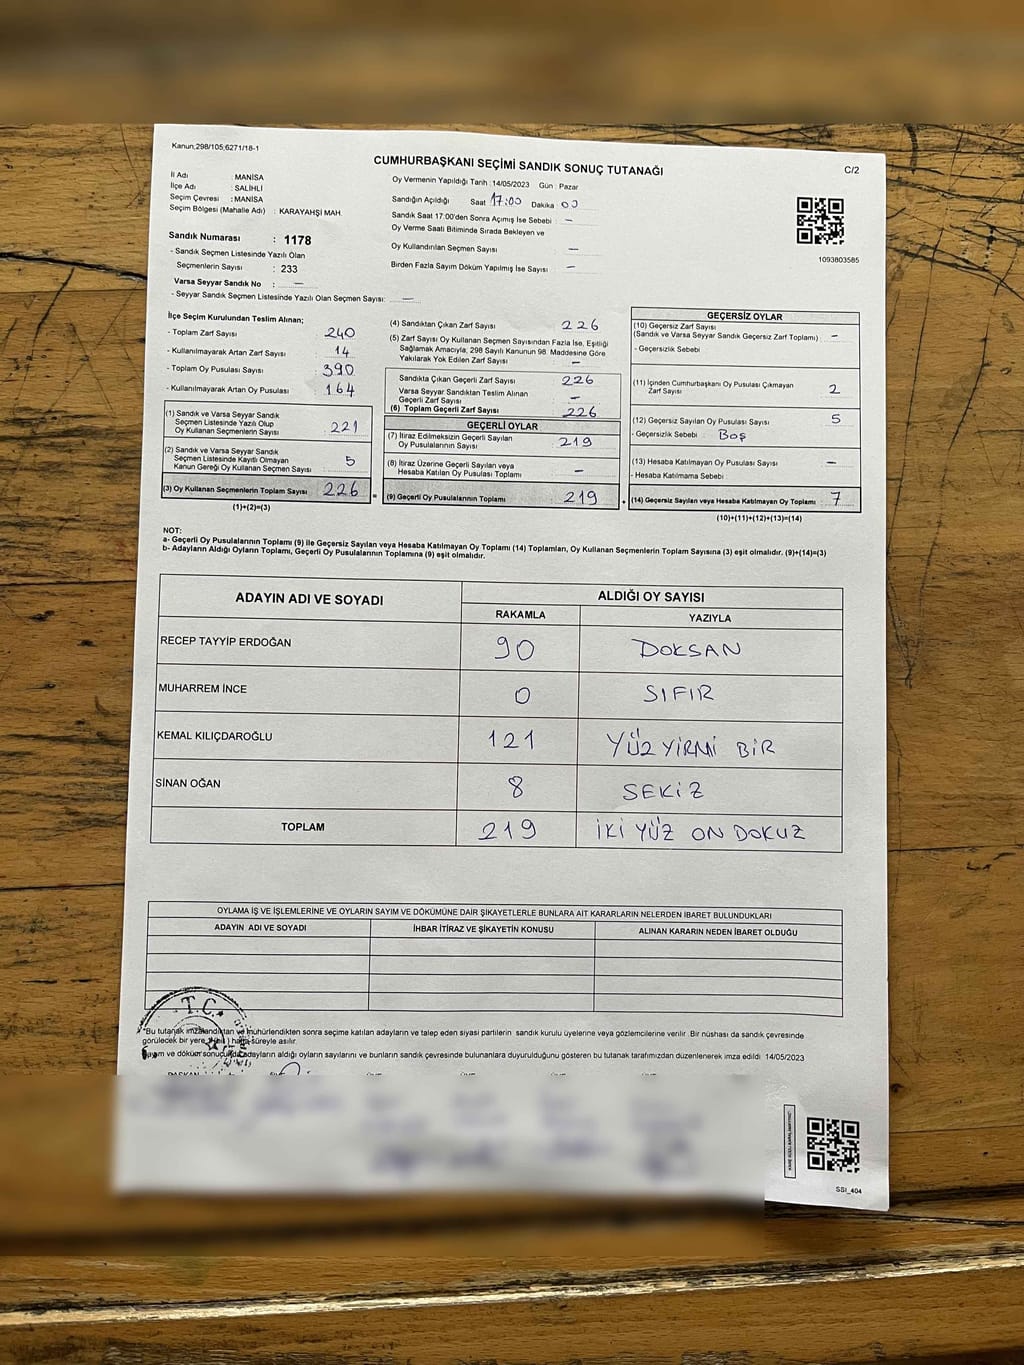 Kanun;298/105;6271/18-1
CUMHURBAŞKANI SEÇİMİ SANDIK SONUÇ TUTANAĞI
C/2
İl Adı : MANİSA
İlçe Adı : SALİHLİ
Seçim Çevresi : MANİSA
Seçim Bölgesi (Mahalle Adı) : KARAYAHŞİ MAH.
Sandık Numarası : 1178
- Sandık Seçmen Listesinde Yazılı Olan
Seçmenlerin Sayısı : 233
Varsa Seyyar Sandık No : —
- Seyyar Sandık Seçmen Listesinde Yazılı Olan Seçmen Sayısı: —
Oy Vermenin Yapıldığı Tarih :14/05/2023 Gün : Pazar
Sandığın Açıldığı Saat 17:00 Dakika 00
Sandık Saat 17:00'den Sonra Açımış İse Sebebi : —
Oy Verme Saati Bitiminde Sırada Bekleyen ve
Oy Kullandırılan Seçmen Sayısı —
Birden Fazla Sayım Döküm Yapılmış İse Sayısı : —
1093803585
İlçe Seçim Kurulundan Teslim Alınan;
- Toplam Zarf Sayısı 240
- Kullanılmayarak Artan Zarf Sayısı 14
- Toplam Oy Pusulası Sayısı 390
- Kullanılmayarak Artan Oy Pusulası 164
(1) Sandık ve Varsa Seyyar Sandık
Seçmen Listesinde Yazılı Olup
Oy Kullanan Seçmenlerin Sayısı 221
(2) Sandık ve Varsa Seyyar Sandık
Seçmen Listesinde Kayıtlı Olmayan
Kanun Gereği Oy Kullanan Seçmen Sayısı 5
(3) Oy Kullanan Seçmenlerin Toplam Sayısı 226 =
(1)+(2)=(3)
(4) Sandıktan Çıkan Zarf Sayısı 226
(5) Zarf Sayısı Oy Kullanan Seçmen Sayısından Fazla İse, Eşitliği
Sağlamak Amacıyla, 298 Sayılı Kanunun 98. Maddesine Göre
Yakılarak Yok Edilen Zarf Sayısı —
Sandıkta Çıkan Geçerli Zarf Sayısı 226
Varsa Seyyar Sandıktan Teslim Alınan
Geçerli Zarf Sayısı —
(6) Toplam Geçerli Zarf Sayısı 226
GEÇERLİ OYLAR
(7) İtiraz Edilmeksizin Geçerli Sayılan
Oy Pusulalarının Sayısı 219
(8) İtiraz Üzerine Geçerli Sayılan veya
Hesaba Katılan Oy Pusulası Toplamı —
(9) Geçerli Oy Pusulalarının Toplamı 219 +
GEÇERSİZ OYLAR
(10) Geçersiz Zarf Sayısı
(Sandık ve Varsa Seyyar Sandık Geçersiz Zarf Toplamı) —
- Geçersizlik Sebebi
(11) İçinden Cumhurbaşkanı Oy Pusulası Çıkmayan
Zarf Sayısı 2
(12) Geçersiz Sayılan Oy Pusulası Sayısı 5
- Geçersizlik Sebebi : Boş
(13) Hesaba Katılmayan Oy Pusulası Sayısı —
- Hesaba Katılmama Sebebi
(14) Geçersiz Sayılan veya Hesaba Katılmayan Oy Toplamı 7
(10)+(11)+(12)+(13)=(14)
NOT:
a- Geçerli Oy Pusulalarının Toplamı (9) ile Geçersiz Sayılan veya Hesaba Katılmayan Oy Toplamı (14) Toplamları, Oy Kullanan Seçmenlerin Toplam Sayısına (3) eşit olmalıdır. (9)+(14)=(3)
b- Adayların Aldığı Oyların Toplamı, Geçerli Oy Pusulalarının Toplamına (9) eşit olmalıdır.
ADAYIN ADI VE SOYADI ALDIĞI OY SAYISI
RAKAMLA YAZIYLA
RECEP TAYYİP ERDOĞAN 90 DOKSAN
MUHARREM İNCE 0 SIFIR
KEMAL KILIÇDAROĞLU 121 YÜZ YİRMİ BİR
SİNAN OĞAN 8 SEKİZ
TOPLAM 219 İKİ YÜZ ON DOKUZ
OYLAMA İŞ VE İŞLEMLERİNE VE OYLARIN SAYIM VE DÖKÜMÜNE DAİR ŞİKAYETLERLE BUNLARA AİT KARARLARIN NELERDEN İBARET BULUNDUKLARI
ADAYIN ADI VE SOYADI İHBAR İTİRAZ VE ŞİKAYETİN KONUSU ALINAN KARARIN NEDEN İBARET OLDUĞU
T.C.
"Bu tutanak imzalandıktan ve mühürlendikten sonra seçime katılan adayların ve talep eden siyasi partilerin sandık kurulu üyelerine veya gözlemcilerine verilir. Bir nüshası da sandık çevresinde
görülecek bir yere hafta süreyle asılır.
Sayım ve döküm sonucunda adayların aldığı oyların sayılarını ve bunların sandık çevresinde bulunanlara duyurulduğunu gösteren bu tutanak tarafımızdan düzenlenerek imza edildi 14/05/2023
BAŞKAN
SSİ_404